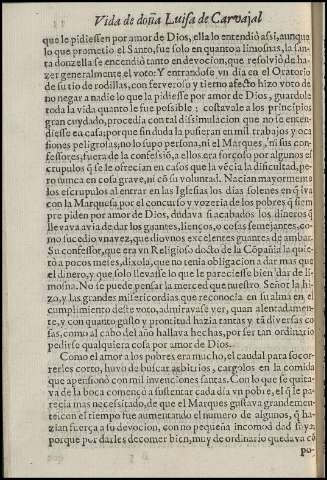 Vida de doña Luisa de Carvajal
que le pidiessen por amor de Dios, ella lo entendió assi, aunque
lo que prometio el Santo, fue solo en quanto a limosnas, la san
ta donzella se encendiò tanto en deuocion, que resoluiò de ha-
zer generalmente el voto: Y entrandose vn dia en el Oratorio
de su tio de rodillas, con feruoroso y tierno afecto hizo voto de
no negar a nadie lo que la pidiesse por amor de Dios, guardole
toda la vida quanto le fue possible; costauale a los principios
gran cuydado, procedia con tal dissimulacion que no lo enten-
diesse en casa; porque sin duda la pusieran en mil trabajos y oca
siones peligrosas; no lo supo persona, ni el Marques, ni sus con-
fessores, fuera de la confessiõ, a ellos era forçoso por algunos es
crupulos q̃ se le ofrecian en casos que la vẽcia la dificultad, pe-
ro nunca en cosa graue, ni cõ su voluntad. Nacian mayormente
los escrupulos al entrar en las Iglesias los dias solenes en q̃ iva
con la Marquesa por el concurso y vozeria de los pobres q̃ siem
pre piden por amor de Dios, dudaua si acabados los dineros q̃
lleuaua auia de dar los guantes, liençós, o cosas semejantes, co-
mo sucediò vna vez, que dio vnos excelentes guantes de ambar.
Su confessor, que era vn Religioso docto de la Cõpañia la quie-
tò a pocos meses, dixola, que no tenia obligacion a dar mas que
el dinero, y que solo lleuasse lo que le pareciesse bien dar de li-
mosna. No se puede pensar la merced que nuestro Señor la hi-
zo, y las grandes misericordias que reconocia en su alma en el
cumplimiento deste voto, admirauase ver, quan alentadamen-
te, y con quanto gusto y prontitud hazia tantas y tã diuersas co
sas, como al cabo del año hallaua hechas, por ser tan ordinario
pedirse qualquiera cosa por amor de Dios.
Como el amor a los pobres era mucho, el caudal para socor-
rerles corto, huuo de buscar arbitrios, cargolos en la comida
que apensionò con mil inuenciones santas. Con lo que se quita-
ua de la boca començò a sustentar cada dia vn pobre, el q̃ le pa-
recia mas necessitado, de que el Marques gustaua grandemen-
te: con el tiempo fue aumentando el numero de algunos, q̃ ha-
zian fuerça a su deuocion, con no pequeña incomodidad suya;
porque por darles de comer bien, muy de ordinario quedaua cõ
po-